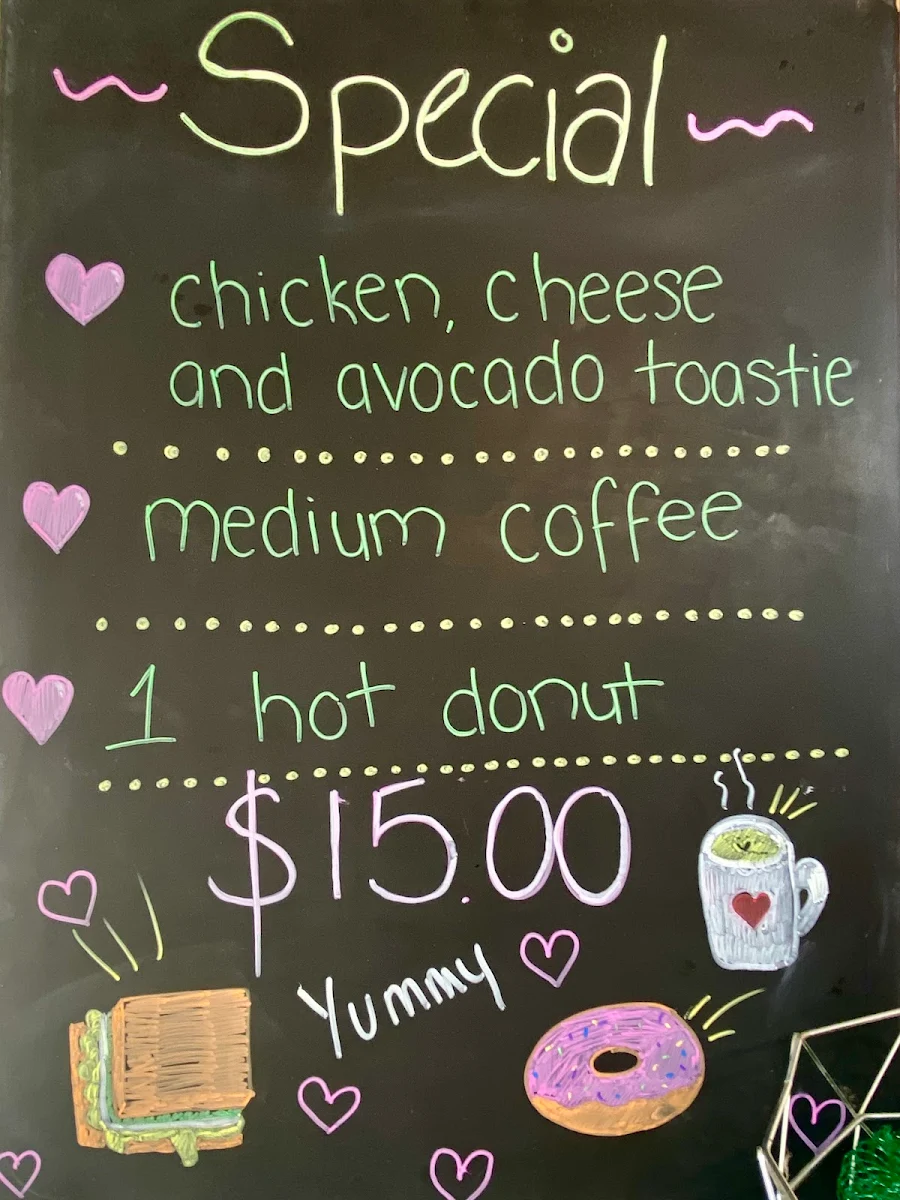 Special
chicken, cheese
and avocado toastie
medium coffee
1 hot donut
$15.00
Yummy